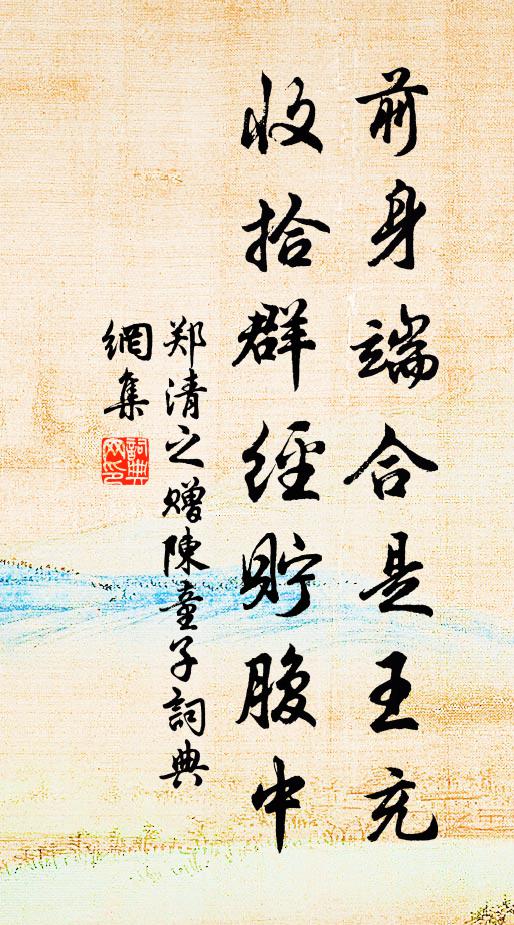 前身端合是王充
收拾群經貯腹中
郑清之赠陳童子詞典
網集
詞典
网印